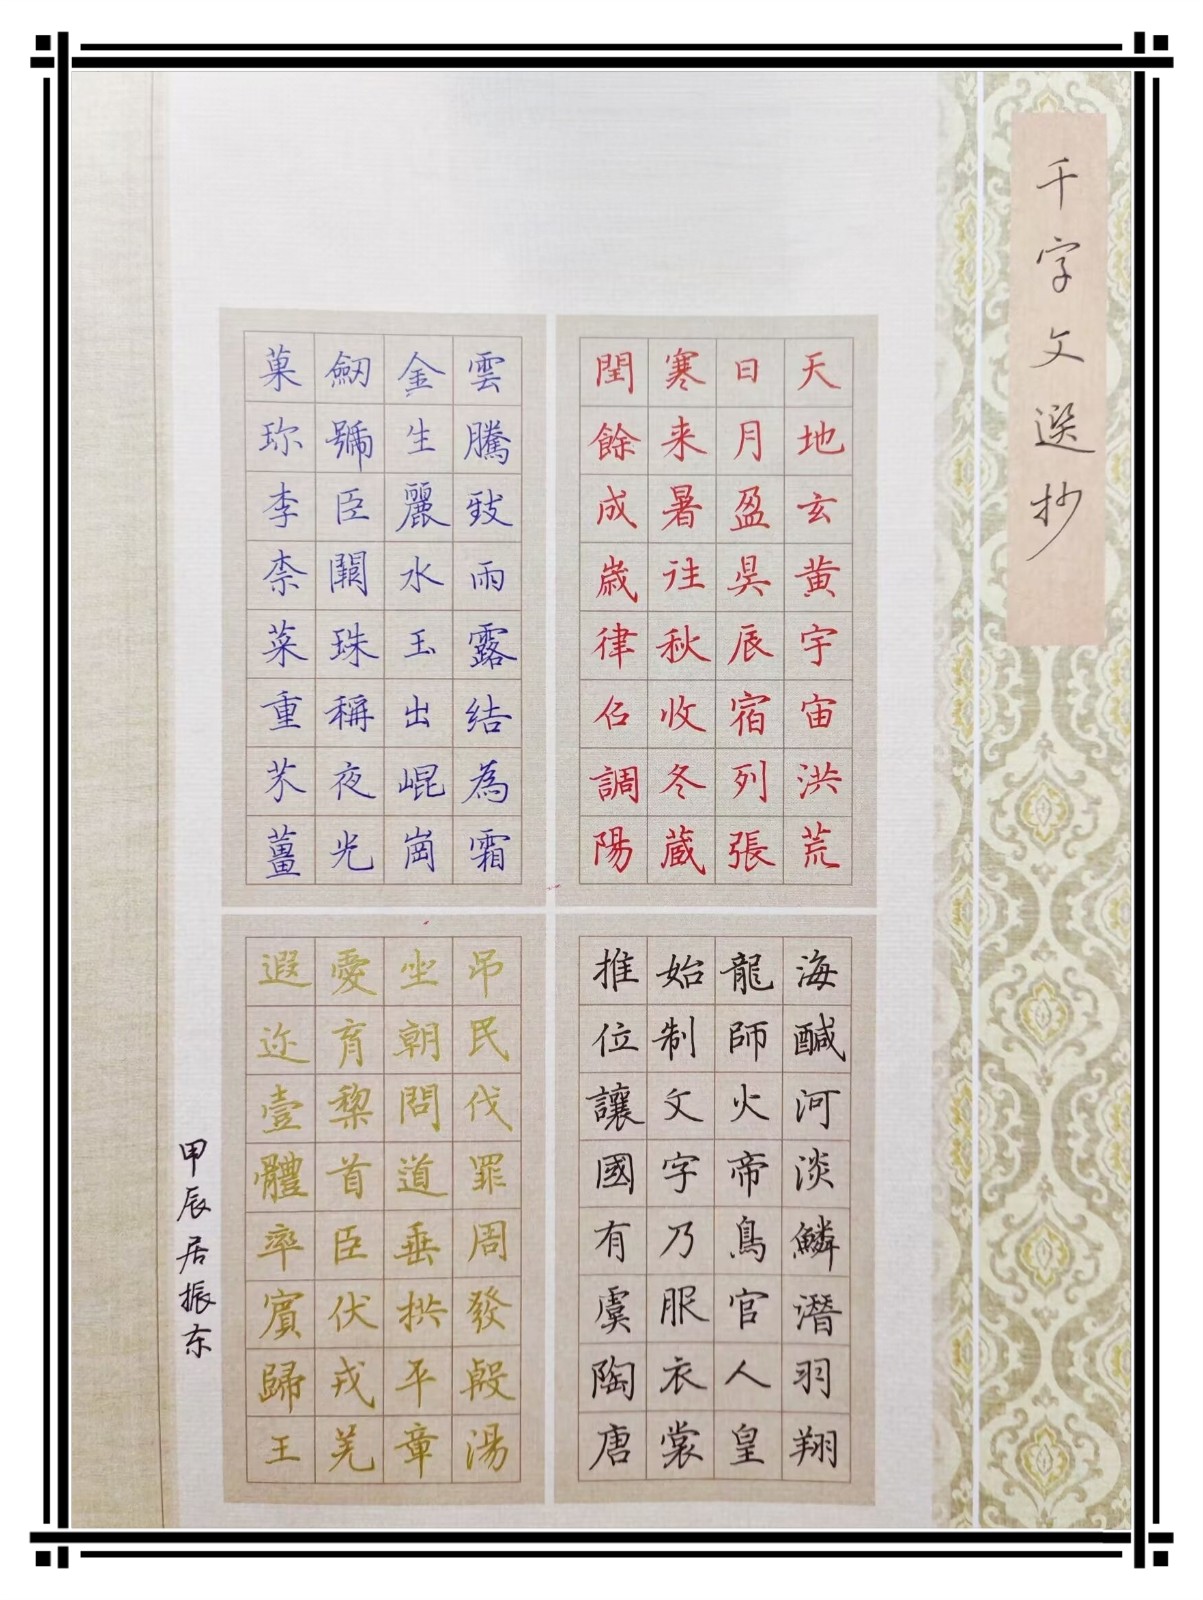 千字文選抄
天地玄黄宇宙洪荒
日月盈昃辰宿列張
寒来暑往秋收冬蔵
閏餘成歲律召調陽
雲騰致雨露結為霜
金生麗水玉出崐崗
劒號臣闕珠稱夜光
菓珎李柰菜重芥薑
海醎河淡鱗潛羽翔
龍師火帝鳥官人皇
始制文字乃服衣裳
推位讓國有虞陶唐
吊民伐罪周發殷湯
坐朝問道垂拱平章
愛育黎首臣伏戎羌
遐迩壹體率賓歸王
甲辰居振东